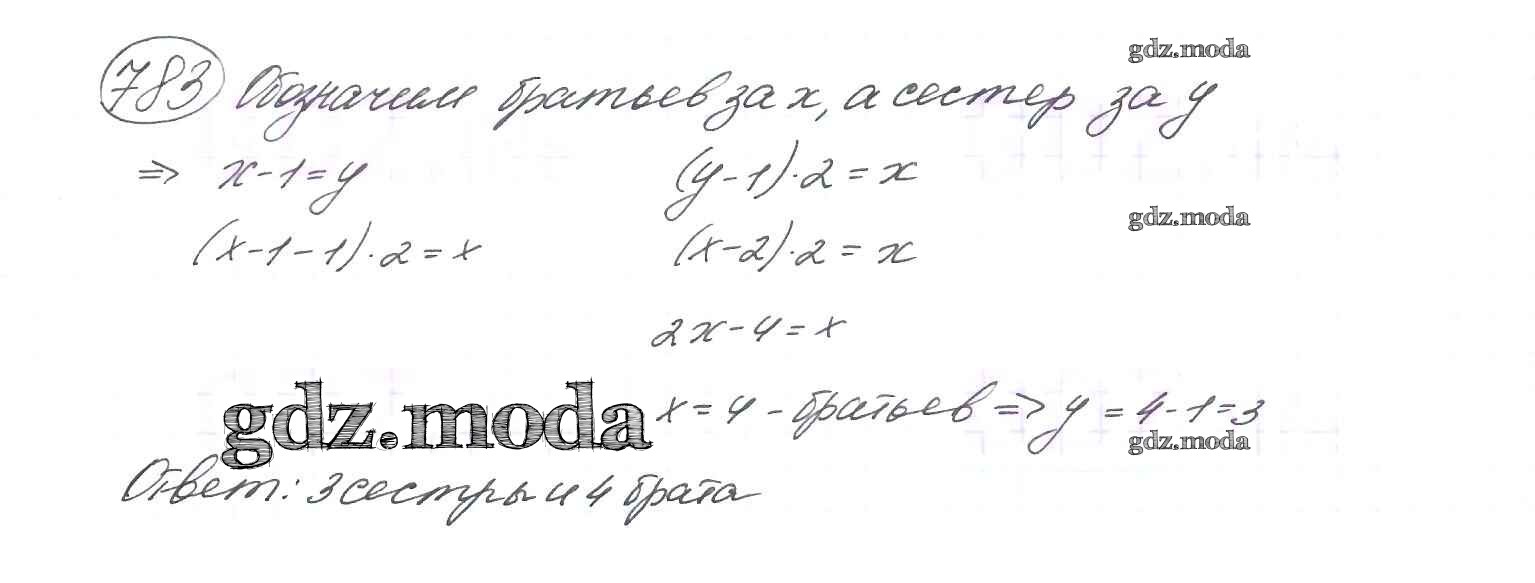 gdz.moda
783 Обозначим братьев за x, а сестер за y
=> x-1=y (y-1)·2=x
gdz.moda
(x-1-1)·2=x (x-2)·2=x
2x-4=x
gdz.moda x=4-братьев => y=4-1=3
gdz.moda
Ответ: 3 сестры и 4 брата